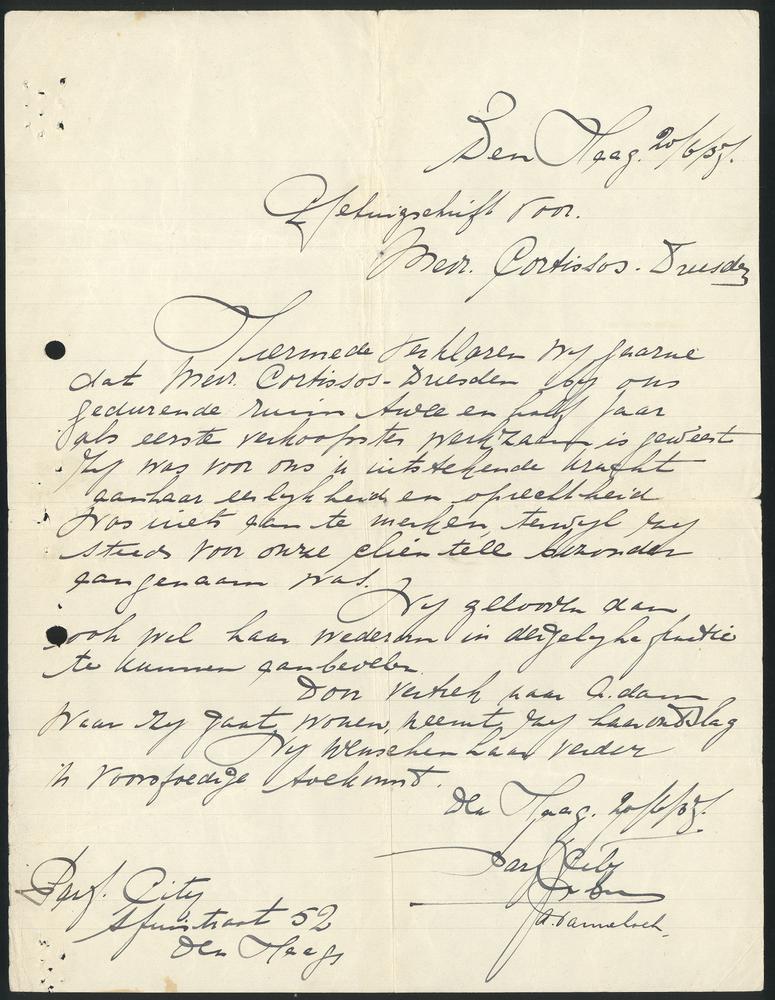 Den Haag. 20/6/37.
Getuigschrift voor.
Mevr. Cortissos-Dresden
Hiermede verklaren wy gaarne
dat Mevr. Cortissos-Dresden by ons
gedurende ruim twee en half jaar
als eerste verkoopster werkzaam is geweest
Zy was voor ons 'n uitstekende kracht
aan haar eerlykheid en oprechtheid
was niets aan te merken, terwyl zy
steeds voor onze cliëntele bizonder
aangenaam was.
Wy gelooven dan
ook wel haar wederom in dergelyke functie
te kunnen aanbevelen
Door vertrek naar A.dam
waar zy gaat wonen, neemt zy haar ontslag
Wy wenschen haar verder
'n voorspoedige toekomst.
den Haag. 20/6/37.
Parf. City
Parf. City
straat 52
den Haag